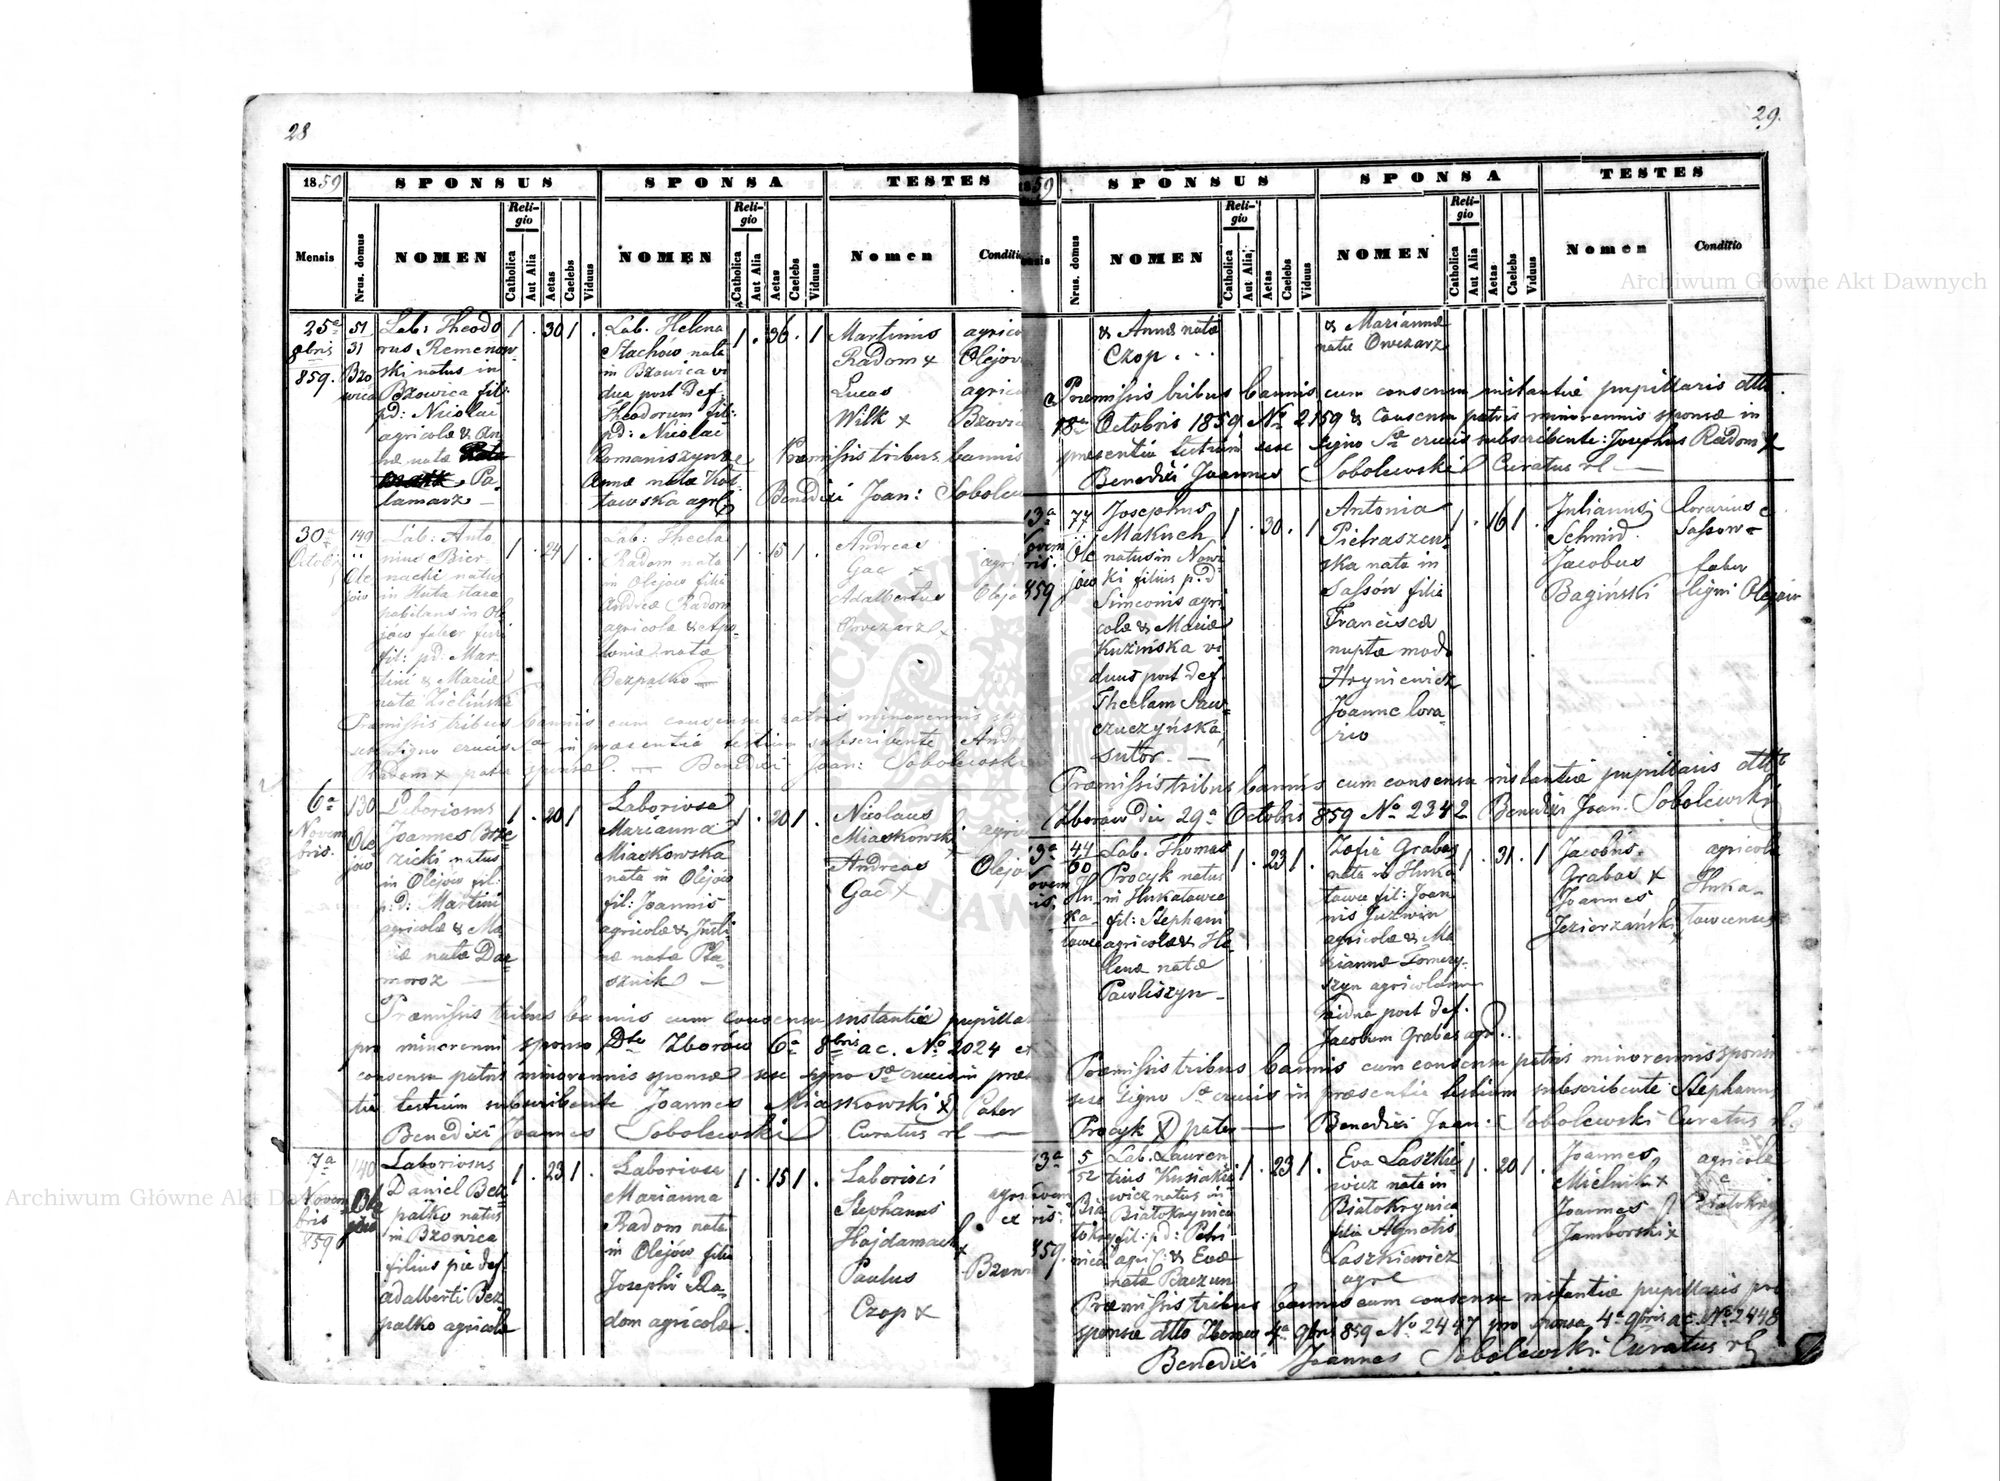 28
1859
SPONSUS
SPONSA
TESTES
Mensis
Nrus. domus
NOMEN
Religio
Catholica
Aut Alia
Aetas
Caelebs
Viduus
NOMEN
Religio
Catholica
Aut Alia
Aetas
Caelebs
Viduus
Nomen
Conditio
25a
8bris
859.
51
31
Bzo
wica
Lab: Theodo
rus Remenow
ski natus in
Bzowica fil:
pd: Nicolai
agricolæ & An
næ natæ
Pa
lamarz
1 . 30 1 .
Lab. Helena
Stachów nata
in Bzowica vi
dua post Def.
Theodorum fil:
pd: Nicolai
Romaniszyn
Annæ natæ Kot
lawska agr
1 . 36 . 1
Martinus
Radom x
Lucas
Wilk x
agrico
Olejow
agrico
Bzovic
Præmissis tribus bannis
Benedixi Joan: Sobolew
30a
Octobris
149
Ole
jow
Lab: Anto
nius Bier
nacki natus
in Huta stara
habitans in Ol
jow faber ferri
fil: pd: Mar
tini & Mariæ
natæ Zielińska
1 . 24 1 .
Lab: Thecla
Radom nata
in Olejow filia
Andreæ Radom
agricolæ & Apo
loniæ natæ
Bezpalko
1 . 15 1 .
Andreas
Gac x
Adalbertus
Owczarz x
agri
Olejo
Præmissis tribus bannis cum consensu patris minorennis
sese signo crucis Sæ in præsentia testium subscribente Andr
Radom x pater sponsæ. Benedixi Joan: Sobolewski
6a
Novem
bris.
130
Ole
jow
Laboriosus
Joannes Brze
zicki natus
in Olejów fil:
p:d: Martini
agricolæ & Ma
iæ natæ Dar
moroz
1 . 20 1
Laboriosa
Marianna
Miaskowska
nata in Olejow
fil: Joannis
agricolæ & Justi
næ natæ Pta
sznik
1 . 20 1 .
Nicolaus
Miaskowski
Andreas
Gac x
agric
Olejo
Præmissis tribus bannis cum consensu instantiæ pupilla
pro minorenni sponso Dto Zborów 6a 8bris ac. No 2024 et
consensu patris minorennis sponsæ sese signo Sæ crucis in præ
tia testium subscribente Joannes Miaskowski x Pater
Benedixi Joannes Sobolewski Curatus rl
7a
Novem
bris
859
140
Ole
jow
Laboriosus
Daniel Bez
palko natus
in Bzowica
filius piæ def
adalberti Bez
palko agricolæ
1 . 23 1 .
Laboriosa
Marianna
Radom nata
in Olejów filia
Josephi Ra
dom agricolæ.
1 . 15 1 .
Laboriosi
Stephanus
Hajdamach
x
Paulus
Czop x
agri
ex
Bzow
29.
1859
SPONSUS
SPONSA
TESTES
Nrus. domus
NOMEN
Religio
Catholica
Aut Alia
Aetas
Caelebs
Viduus
NOMEN
Religio
Catholica
Aut Alia
Aetas
Caelebs
Viduus
Nomen
Conditio
& Annæ natæ
Czop . . .
& Mariannæ
natæ Owczarz
Præmissis tribus bannis cum consensu instantiæ pupillaris dtto
18a Octobris 1859 No 2159 & consensu patris minorennis sponsæ in
præsentia testium sese signo Sæ crucis subscribente: Josephus Radom x
Benedixi Joannes Sobolewski Curatus rl
13a
Novem
bris.
859
77
Ole
jow
Josephus
Makuch
natus in Nowi
ki filius p.d
Simeonis agri
colæ & Mariæ
Kuzińska vi
duus post def.
Theclam Saw
czuczyńska
sutor.
1 . 30 . 1
Antonia
Pietraszew
ska nata in
Sassów filia
Francisca
nupta modo
Hryniewicz
Joanne lora
rio
1 . 16 1 .
Julianus
Schmid
Jacobus
Bagiński
lorarius e
Sassow
faber
ligni Olejow
Præmissis tribus bannis cum consensu instantiæ pupillaris dtto
Zborow die 29a Octobris 859 No 2342 Benedixi Joan: Sobolewski
13a
Novem
bris.
44
60
Hu
ka
lowce
Lab. Thomas
Procyk natus
in Hukalowce
fil: Stephani
agricolæ & He
lenæ natæ
Pawliszyn
1 . 23 1 .
Zofia Grabas
nata in Huka
lowce fil: Joan
nis Juzwin
agricolæ & Ma
riannæ Tomczy
szyn agricolarum
vidua post def.
Jacobum Grabas agr.
1 . 31 . 1
Jacobus
Grabas x
Joannes
Jezierzański
x
agricolæ
Huka
lowcenses
Præmissis tribus bannis cum consensu patris minorennis sponsi
sese signo Sæ crucis in præsentia testium subscribente Stephanus
Procyk x pater Benedixi Joan: Sobolewski Curatus rl.
13a
Novem
bris:
859.
5
52
Bia
lokry
nica
Lab. Lauren
tius Kusiakie
wicz natus in
Białokrynica
fil: p:d: Petri
agri & Evæ
natæ Baczun
1 . 23 1 .
Eva Laszkie
wicz nata in
Białokrynica
filia Agnetis
Laszkiewicz
agre
1 . 20 1 .
Joannes
Mielnik x
Joannes
Jamborski x
agricolæ
e
Białokryn
Præmissis tribus bannis cum consensu instantiæ pupillaris pro
sponso dtto Zborow 4a 9bris 859 No 2447 pro sponsa 4a 9bris ac. No 2448
Benedixi Joannes Sobolewski Curatus rl
Archiwum Główne Akt Dawnych
Archiwum Główne Akt Dawnych